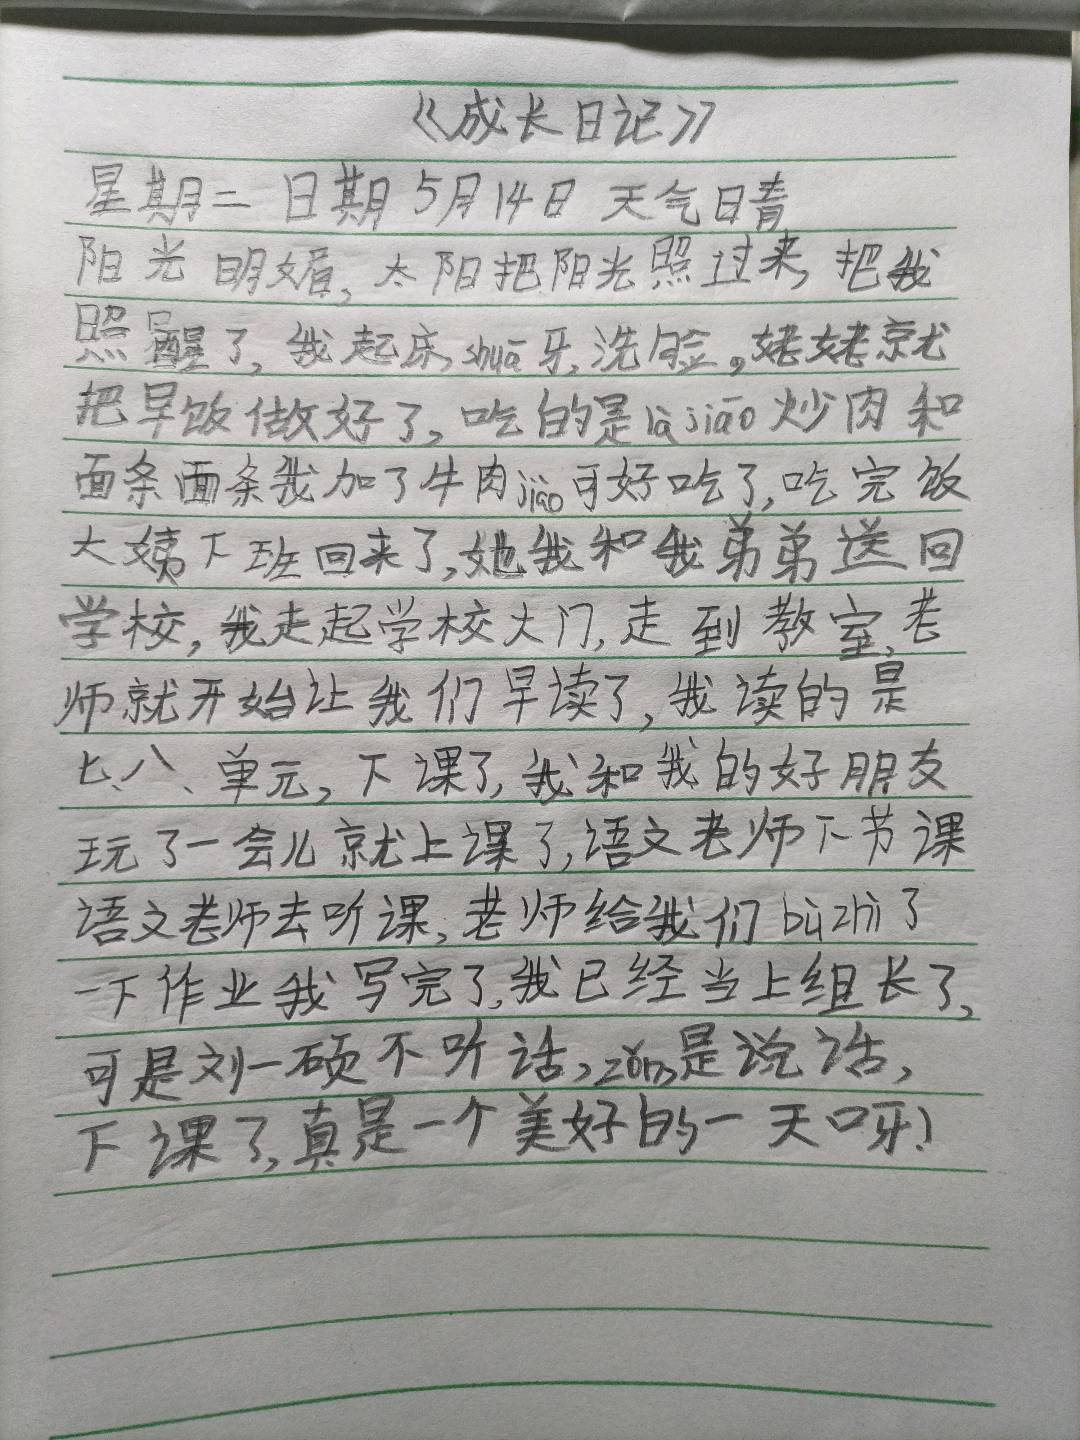 《成长日记》
星期二 日期 5月14日 天气日青
阳光明媚,太阳把阳光照过来,把我
照醒了,我起床,shuā牙,洗脸。姥姥就
把早饭做好了,吃的是làjiāo炒肉和
面条面条我加了牛肉jiào可好吃了,吃完饭
大姨下班回来了,她我和我弟弟送回
学校,我走起学校大门,走到教室,老
师就开始让我们早读了,我读的是
七、八、单元,下课了,我和我的好朋友
玩了一会儿就上课了,语文老师下节课
语文老师去听课,老师给我们bùzhì了
一下作业我写完了,我已经当上组长了,
可是刘一硕不听话,zǒng是说话,
下课了,真是一个美好的一天呀!